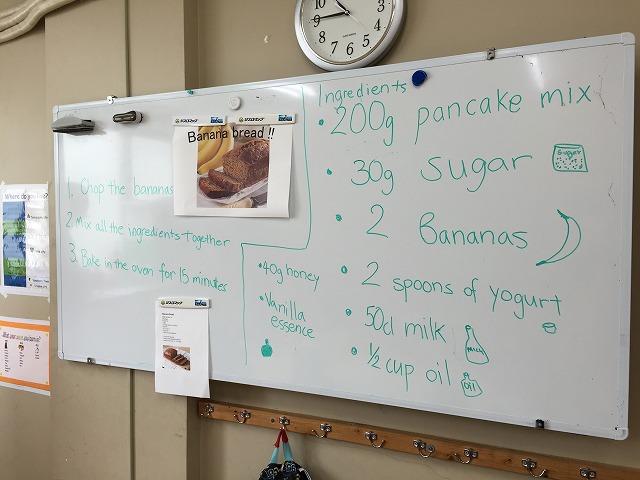 Banana bread !!
1. Chop the bananas
2. Mix all the ingredients together
3. Bake in the oven for 15 minutes
Ingredients
• 200g pancake mix
• 30g sugar
Sugar
• 2 Bananas
• 2 spoons of yogurt
• 50cl milk
Milk
• 1/2 cup oil
Oil
• 40g honey
• Vanilla
essence
Where do you
10
9
8
7
6
5
4
3